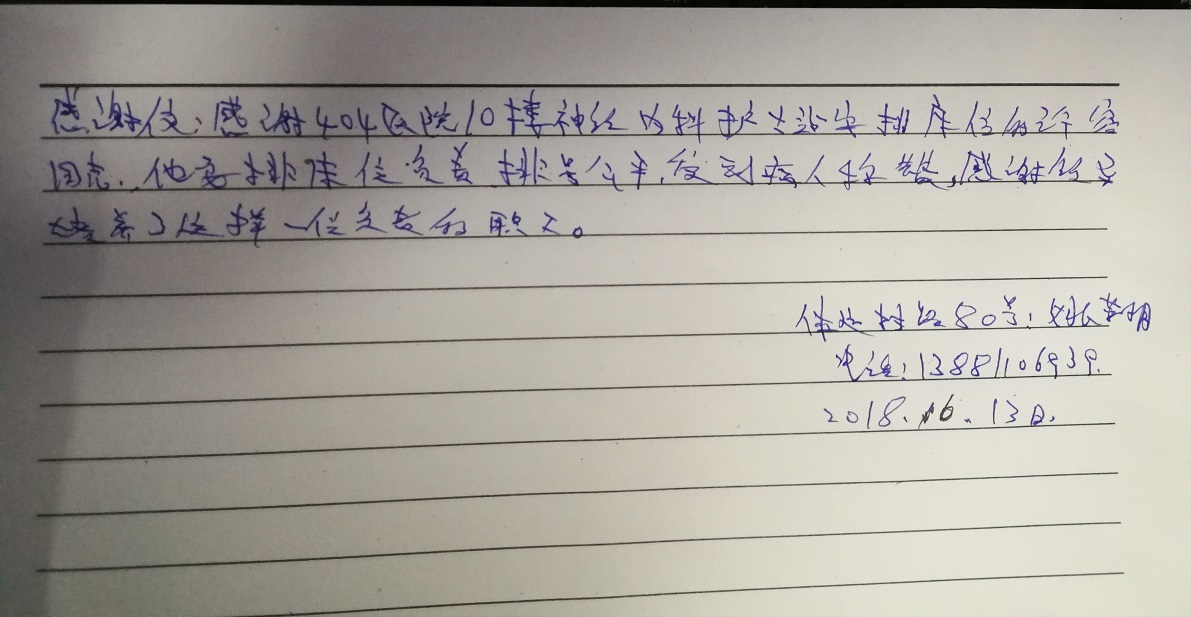 感谢信:感谢404医院10楼神经内科护士站安排床位的许容
同志,他安排床位负责,排号公平,受到病人称赞,感谢领导
培养了这样一位负责的职工。
体运村路80号:
电话:13881106939.
2018.6.13日.